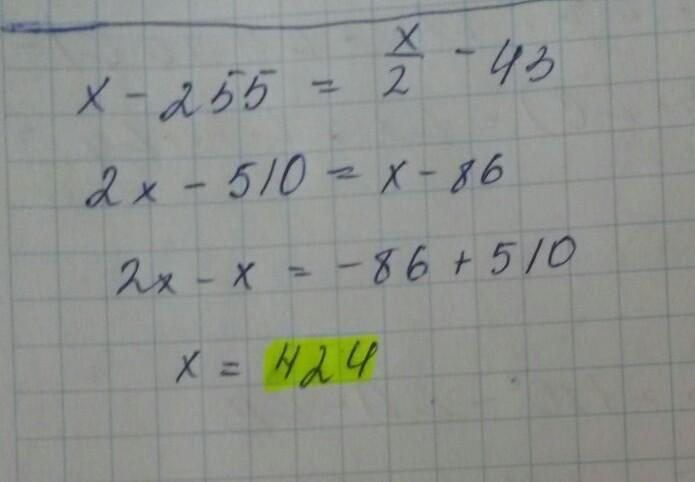 x - 255 = x/2 - 43
2x - 510 = x - 86
2x - x = -86 + 510
x = 424